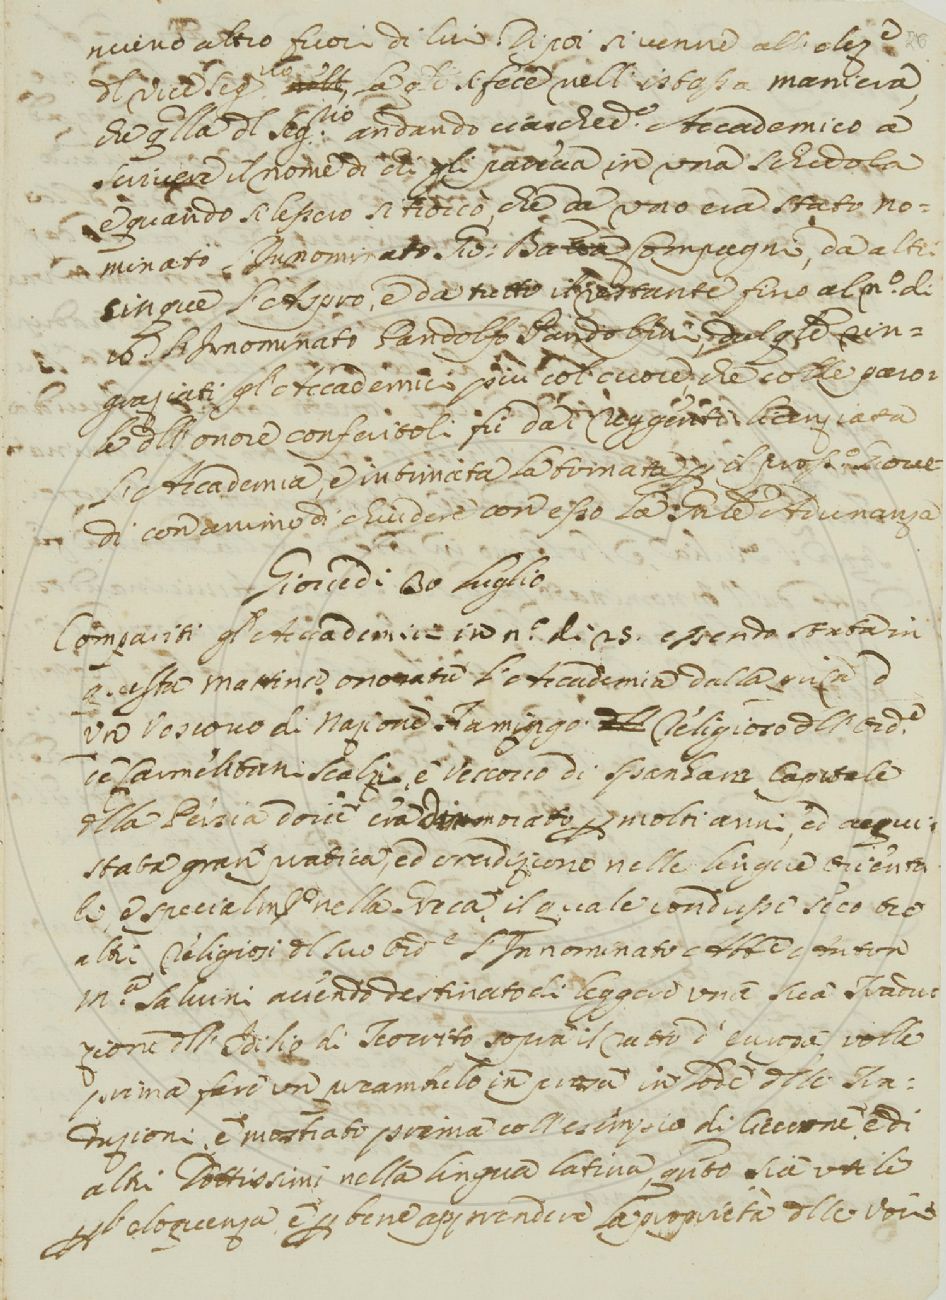 nuino altro fuori di lui. Di poi si venne all'elez.e 26
d'l vice Seg.rio la q'le si fece nell'istessa maniera,
che q'lla d'l Seg.rio andando ciasched.o Accademico a
scrivere il nome di chi gli pareva in una schedola
e quando si lessero si trovò, che da uno era stato no=
minato l'Innominato Gio: Batta Compagni, da altri
cinque l'Aspro, e da tutto il restante fino al n.o di
l'Innominato Pandolfo Pandolfini, dal q'le rin=
graziati gl'Accademici più col cuore che colle paro=
le d'll'onore conferitoli fù dal Reggente licenziata
L'Accademia, e intimata la tornata p il pross.o Giove=
di con animo di chiudere con esso la Adunanza
Giovedi 30 Luglio
Compariti gl'Accademici in n.o di 25. essendo stata in
questa mattina onorata l'Accademia dalla visita d
un Vescovo di Nazione Fiamingo Religioso d'll'Ord.e
de Carmelitani Scalzi, e Vescovo di Spanhan Capitale
d'lla Persia dove era dimorato p molti anni, ed acqui=
stata gran pratica, ed erudizione nelle lingue orienta
li, e specialm.te nella Greca, il quale condusse seco tre
altri Religiosi d'l suo Ord.e l'Innominato Abbe Anton
M.a Salvini avendo destinato di leggere una sua Traduc
zione d'll'Idilio di Teocrito sopra il ratto d'Europa volle
prima fare un preambulo in prosa in lode d'lle Tra=
duzioni, e mostrato prima coll'esempio di Cicerone, e di
altri Dottissimi nella lingua latina, q'nto sia utile
p l'eloquenza, e p bene apprendere la proprietà d'lle voci